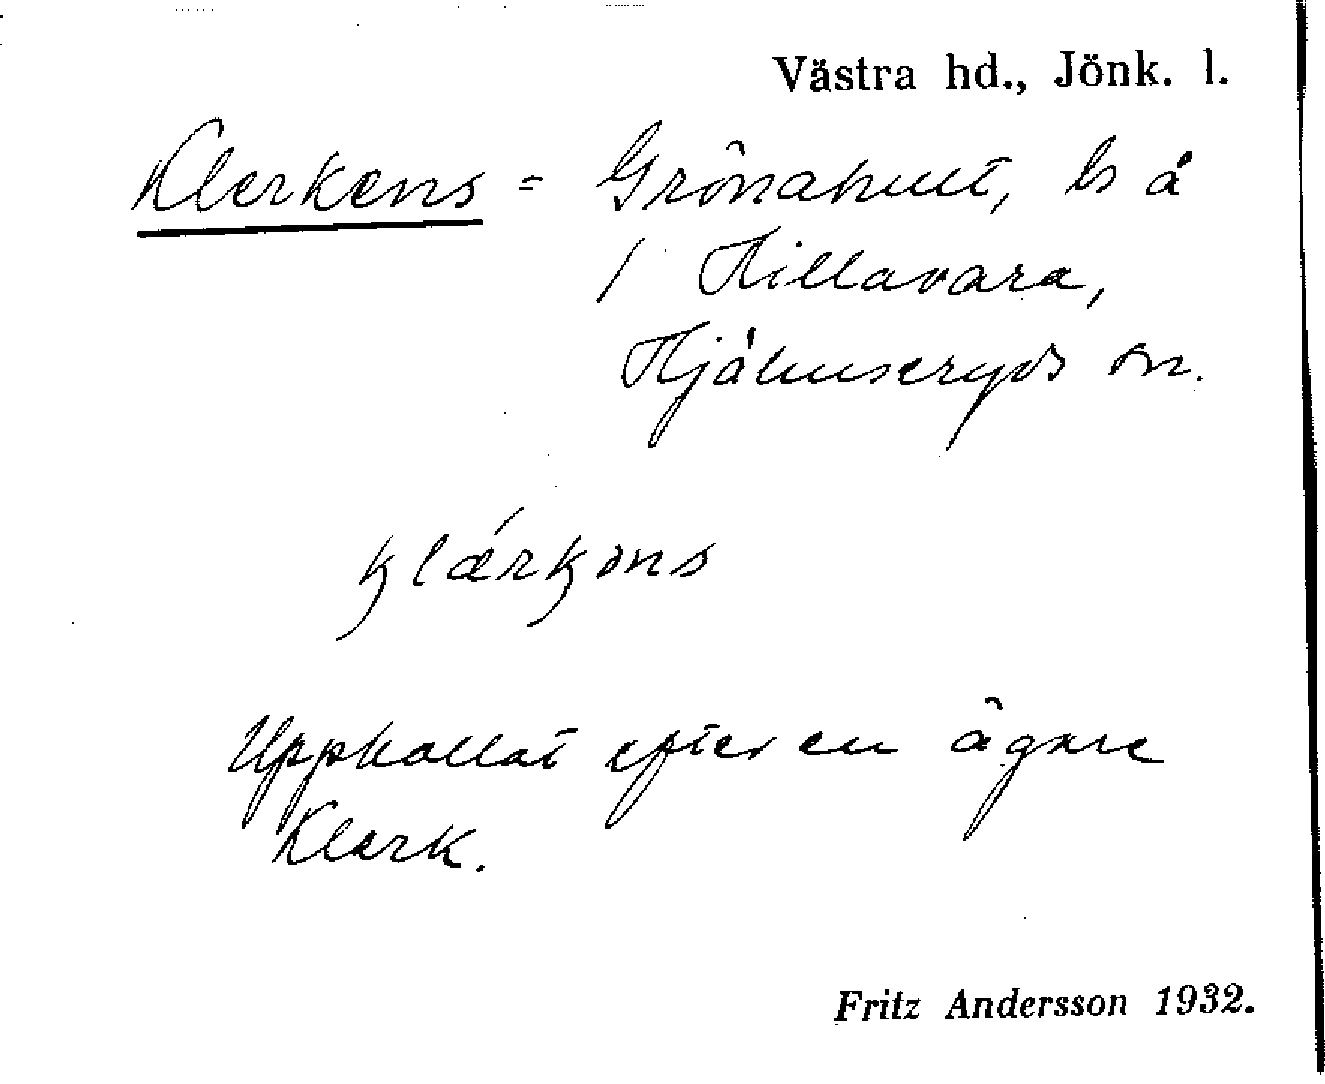 Västra hd., Jönk. l.
Klerkens = Grönahult, ls å
/ Hillavara,
Hjälmseryds sn.
klǽrkəns
Uppkallat efter en ägare
Klerk.
Fritz Andersson 1932.